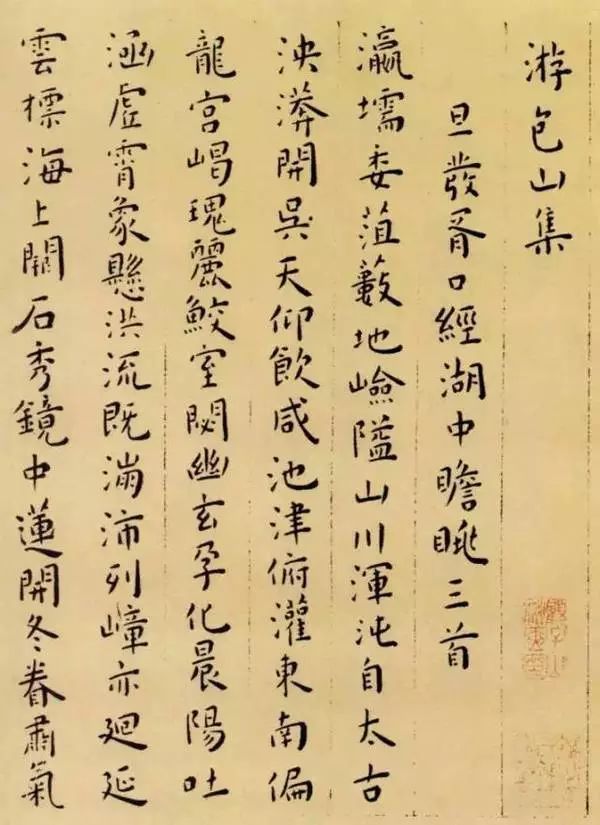 游包山集
旦發胥口經湖中瞻眺三首
瀛壖委菹藪地嶮隘山川渾沌自太古
泱漭開吳天仰飲咸池津俯灌東南偏
龍宮嵑瑰麗鮫室閟幽玄孕化晨陽吐
涵虛霄象懸洪流既滂沛列嶂亦迴延
雲標海上闕石秀鏡中蓮開冬眷肅氣